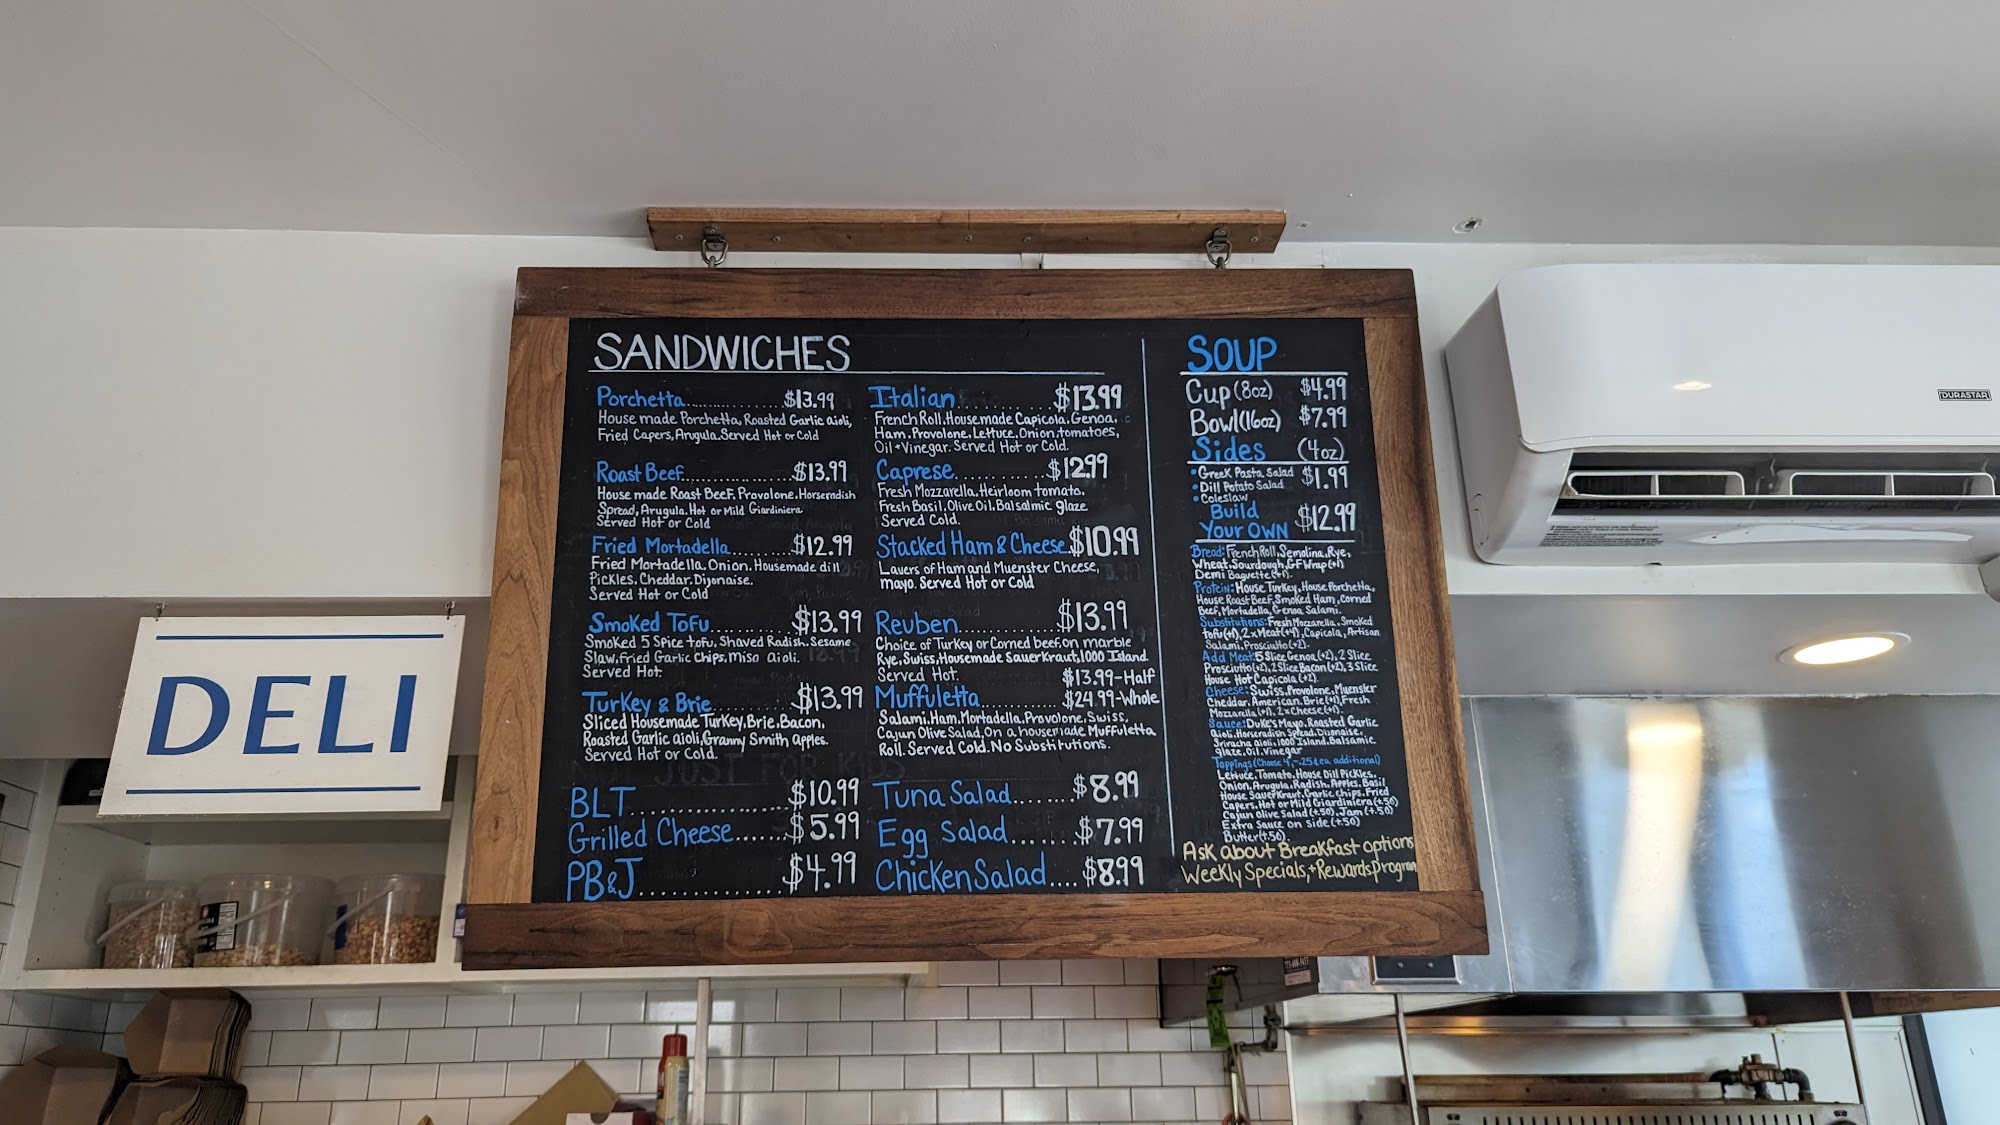 SANDWICHES
Porchetta............$13.99
House made Porchetta, Roasted Garlic aioli,
Fried Capers, Arugula. Served Hot or Cold
Roast Beef............$13.99
House made Roast Beef. Provolone. Horseradish
Spread, Arugula. Hot or Mild Giardiniera
Served Hot or Cold
Fried Mortadella.......$12.99
Fried Mortadella. Onion. Housemade dill
Pickles. Cheddar. Dijonaise.
Served Hot or Cold
Smoked Tofu..........$13.99
Smoked 5 Spice tofu. Shaved Radish. Sesame
Slaw, fried Garlic Chips, miso aioli.
Served Hot.
Turkey & Brie..........$13.99
Sliced Housemade Turkey, Brie. Bacon.
Roasted Garlic aioli, Granny Smith apples.
Served Hot or Cold.
NOT JUST FOR KIDS
BLT..............$10.99
Grilled Cheese......$5.99
PB&J.............$4.99
Italian..........$13.99
French Roll. Housemade Capicola. Genoa.
Ham. Provolone. Lettuce. Onion. tomatoes,
Oil + Vinegar. Served Hot or Cold.
Caprese..........$12.99
Fresh Mozzarella. Heirloom tomato.
Fresh Basil. Olive Oil. Balsalmic glaze
Served Cold.
Stacked Ham & Cheese $10.99
Layers of Ham and Muenster Cheese,
mayo. Served Hot or Cold
Reuben............$13.99
Choice of Turkey or Corned beef. on marble
Rye, Swiss, Housemade Sauerkraut, 1000 Island.
Served Hot.
$13.99-Half
Muffuletta..........$24.99-Whole
Salami. Ham. Mortadella. Provolone. Swiss,
Cajun Olive Salad, On a housemade Muffuletta
Roll. Served Cold. No Substitutions.
Tuna Salad.......$8.99
Egg Salad.......$7.99
Chicken Salad....$8.99
SOUP
Cup (8oz) $4.99
Bowl (16oz) $7.99
Sides (4oz)
• Greek Pasta Salad $1.99
• Dill Potato Salad
• Coleslaw
Build
Your OWN $12.99
Bread: French Roll, Semolina, Rye,
Wheat, Sourdough, GF Wrap (+1)
Demi Baguette (+1).
Protein: House Turkey, House Porchetta,
House Roast Beef, Smoked Ham, Corned
Beef, Mortadella, Genoa Salami.
Substitutions: Fresh Mozzarella. Smoked
Tofu (+1), 2x Meat (+4), Capicola, Artisan
Salami. Prosciutto (+2).
Add Meat: 5 Slice Genoa (+2), 2 Slice
Prosciutto (+2), 2 Slice Bacon (+2), 3 Slice
House Hot Capicola (+2).
Cheese: Swiss. Provolone. Muenster
Cheddar. American. Brie (+1), Fresh
Mozzarella (+1). 2x Cheese (+1).
Sauce: Duke's Mayo. Roasted Garlic
Aioli. Horseradish Spread. Dijonaise.
Sriracha aioli. 1000 Island. Balsamic
glaze. Oil. Vinegar
Toppings (Choose 4, -.25¢ ea additional)
Lettuce. Tomato. House Dill Pickles.
Onion. Arugula. Radish. Apples. Basil
House Sauerkraut. Garlic chips. Fried
Capers. Hot or Mild Giardiniera (+.50)
Cajun Olive Salad (+.50). Jam (+.50)
Extra Sauce on Side (+.50)
Butter (+.50).
Ask about Breakfast options
Weekly Specials, + Rewards Program
DURASTAR
DELI